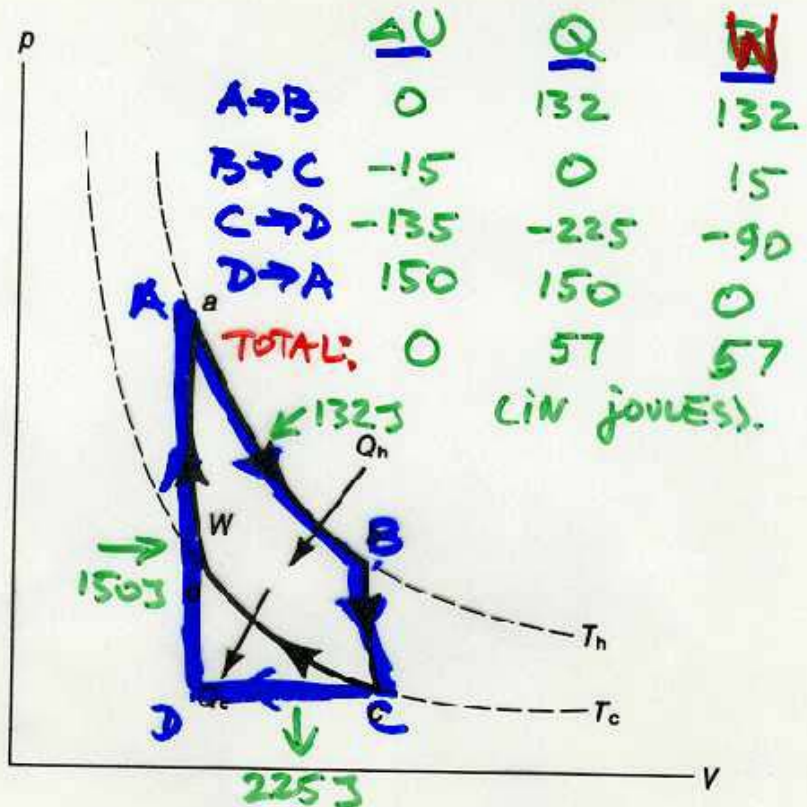 p
ΔU Q W
A→B 0 132 132
B→C -15 0 15
C→D -135 -225 -90
D→A 150 150 0
TOTAL: 0 57 57
(iN jouLES).
A a
132J
Qh
W
B
150J
Th
D C
Tc
225J
V